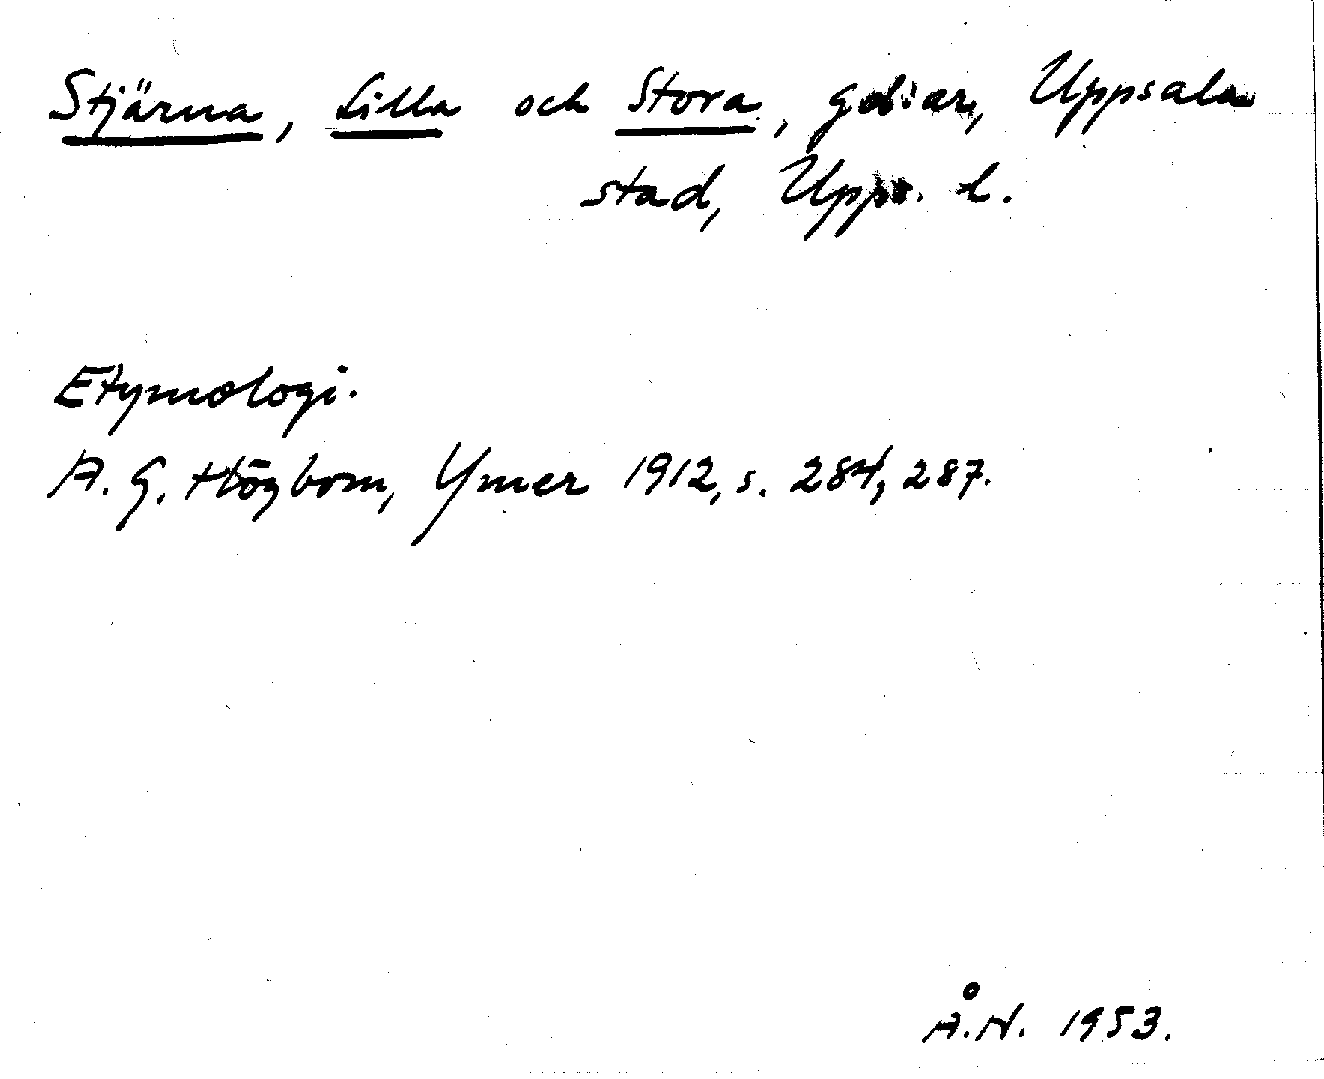 Stjärna, Lilla och Stora, gd:ar, Uppsala
stad, Upps. l.
Etymologi.
A. G. Högbom, Ymer 1912, s. 284, 287.
Å.N. 1953.